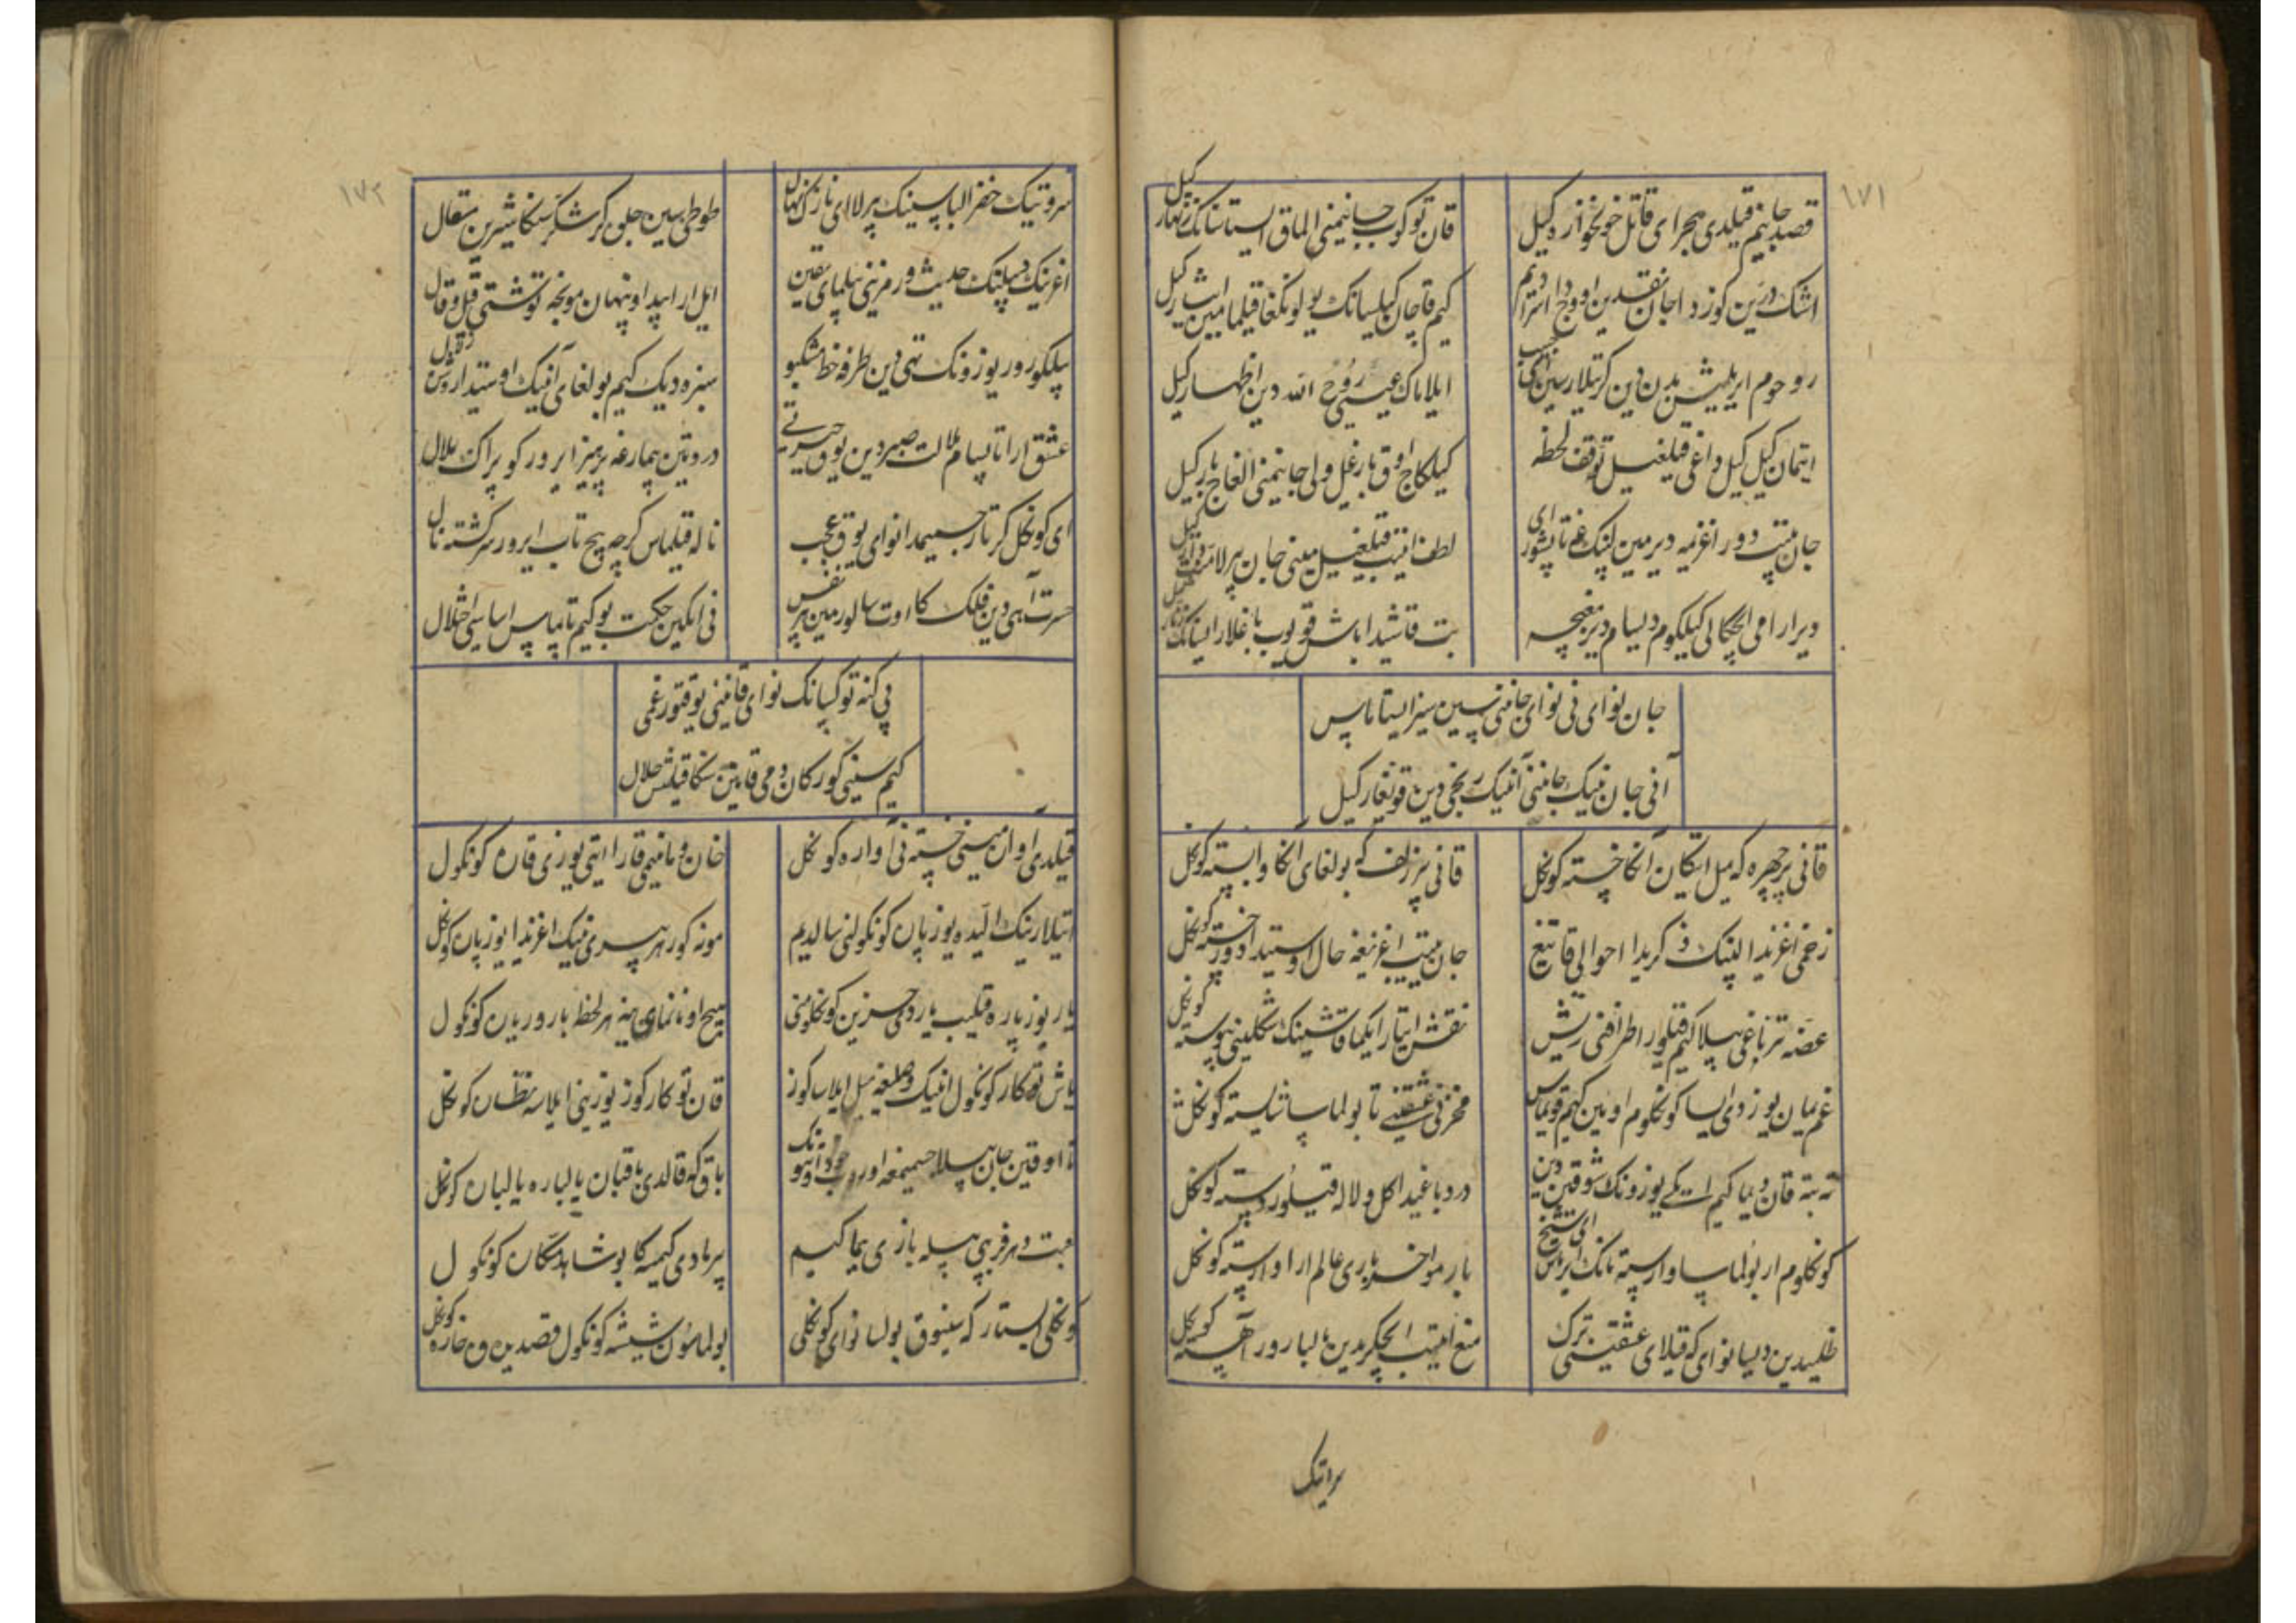 ١٧١
قصد جانیم قیلدی هجر ای قاتل خونخوار کیل
قان توکوب جانیمنی الماق ایستاسانک زنهار کیل
اشک درین کوزدا جان نقدین اووجدا استرادیم
کیم قاچان کیلسانک یولونکغا قیلمامین ایثار کیل
روحوم ایریلمیش بدن دین کرتیلارسین ای حبیب
ایلاماک عیسی روح الله دین اظهار کیل
ایتمان کیل کیل داغی قیلغیل توقف لحظه
کیلکاج اوق بارغیل ولی جانیمنی الغاج بار کیل
جان یتیب دور اغزیمه دیرمین لبنک غه تاپشورای
لطف ایتیب قیلغیل مینی جان بیرلا
دیر ارا می ایچکالی کیلکوم دیسام دیر مغبچه
بت قاشیدا باش قویوب باغلار ایسانک زنار کیل
جان نوای نی نوای جانی سین سیز ایستاماس
آنی جان نینک جانی آنینک رنجی دین قوتغار کیل
قانی بیر چهره که میل ایتکان آنکا خسته کونکل
قانی بیر زلف که بولغای آنکا وابسته کونکل
زخمی اغزیدا لبینک ذکریدا احوالی قاتیغ
جان یتیب اغزیغه حال اوستیدادور خسته کونکل
غصه تیرناغی بیلا کیم قیلور اطرافنی ریش
نقش ایتار ایکما قاشینک شکلینی پیوسته کونکل
غم یمان یوزدی ایسا کونکلوم اویین کیم قویماس
مخزنی عشقینکغه تا بولماسا شایسته کونکل
ته بته قان دیما کیم ایکی یوزونک شوقی دین
درد باغیدا کل و لاله قیلور دسته کونکل
کونکلوم ار بولماسا وارسته نانک ایرماس ای شیخ
بارمو اخر باری عالم ارا وارسته کونکل
ظلمیدین دیسا نوای که قیلای عشقینی ترک
منع ایتیب ایچکریدین یالبارور آهسته کونکل
سروتیک
١٧٢
سروتیک خضر الباسینک بیرلا ای نازک نهال
طوطی سین جلوه کر شکر سنکا شیرین مقال
اغزینک دیلینک حدیث و رمزینی بیلمای یقین
ایل ارا پیدا و پنهان مونجه توشتی قیل و قال
بیلکورور یوزونک تیی دین طرفه خط مشکبو
سبزه دیک کیم بولغای آنینک اوستیدا روشن زلال
عشق ارا تاپسام ملالت صبر دین یوق حیرتی
درد تین بیمارغه پرهیز ایرور کوپراک ملال
ای کونکل کر تار جسمیمدا نوای یوق عجب
ناله قیلماس کرچه پیچ تاب ایرور سررشته نال
حسرت آهی دین فلک کا اوت سالورمین هر نفس
نی ایکین حکمت بو کیم تاپماس اساسی اختلال
بی کنه توکسانک نوای قانینی یوقتور غمی
کیم سینی کورکان دمی قانین سنکا قیلمیش حلال
قیلدی اوان مینی خسته نی آواره کونکل
خان و مانیمنی قارا ایتی یوزی قاره کونکول
ایتلارینک الیده یوز پاره کونکولنی سالدیم
مونه کور هر بیری نینک اغزیدا یوز پاره کونکل
یار یوز پاره قیلیب یاردی حزین کونکلومنی
هیچ اونانمای ینه هر لحظه بارور یاره کونکول
یاش توکار کونکول انینک وصلیغه میل ایلاب کوز
قان توکار کوز یوزینی ایلاسه نظاره کونکل
تا اوقین جان بیلا جسمیمغه
باق که قالدی باقیبان یالباره یالباره کونکل
محبت دهر فریبی بیله بازی یماکیم
بیرمادی کیمسه کا بو شاهد مکاره کونکول
کونکلی ایستار که سینوق بولسا نوای کونکلی
بولماسون شیشه کونکول قصدیده خاره کونکل